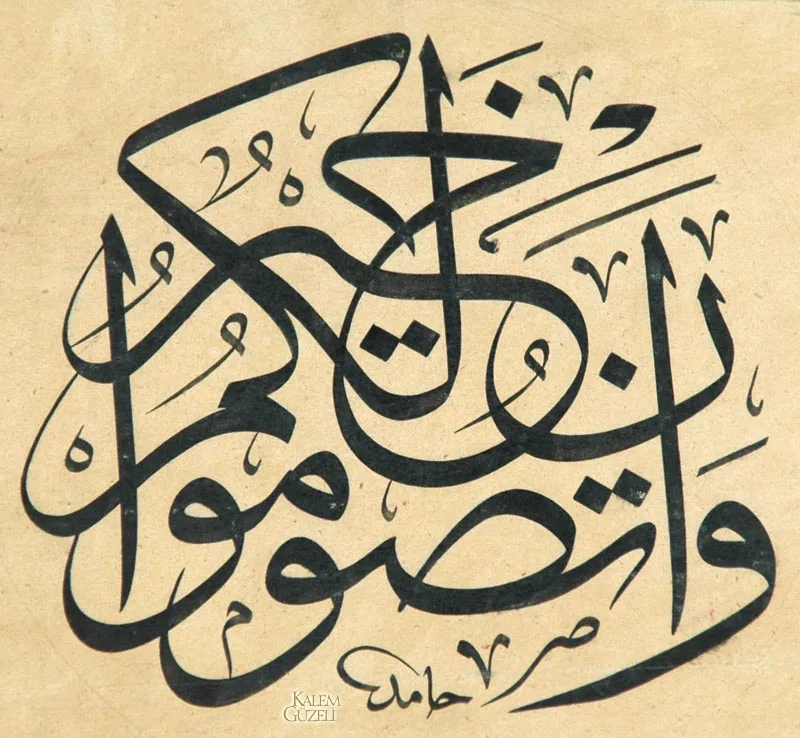 وَأَن تَصُومُوا خَيْرٌ لَكُمْ
حامد
KALEM
GÜZELİ